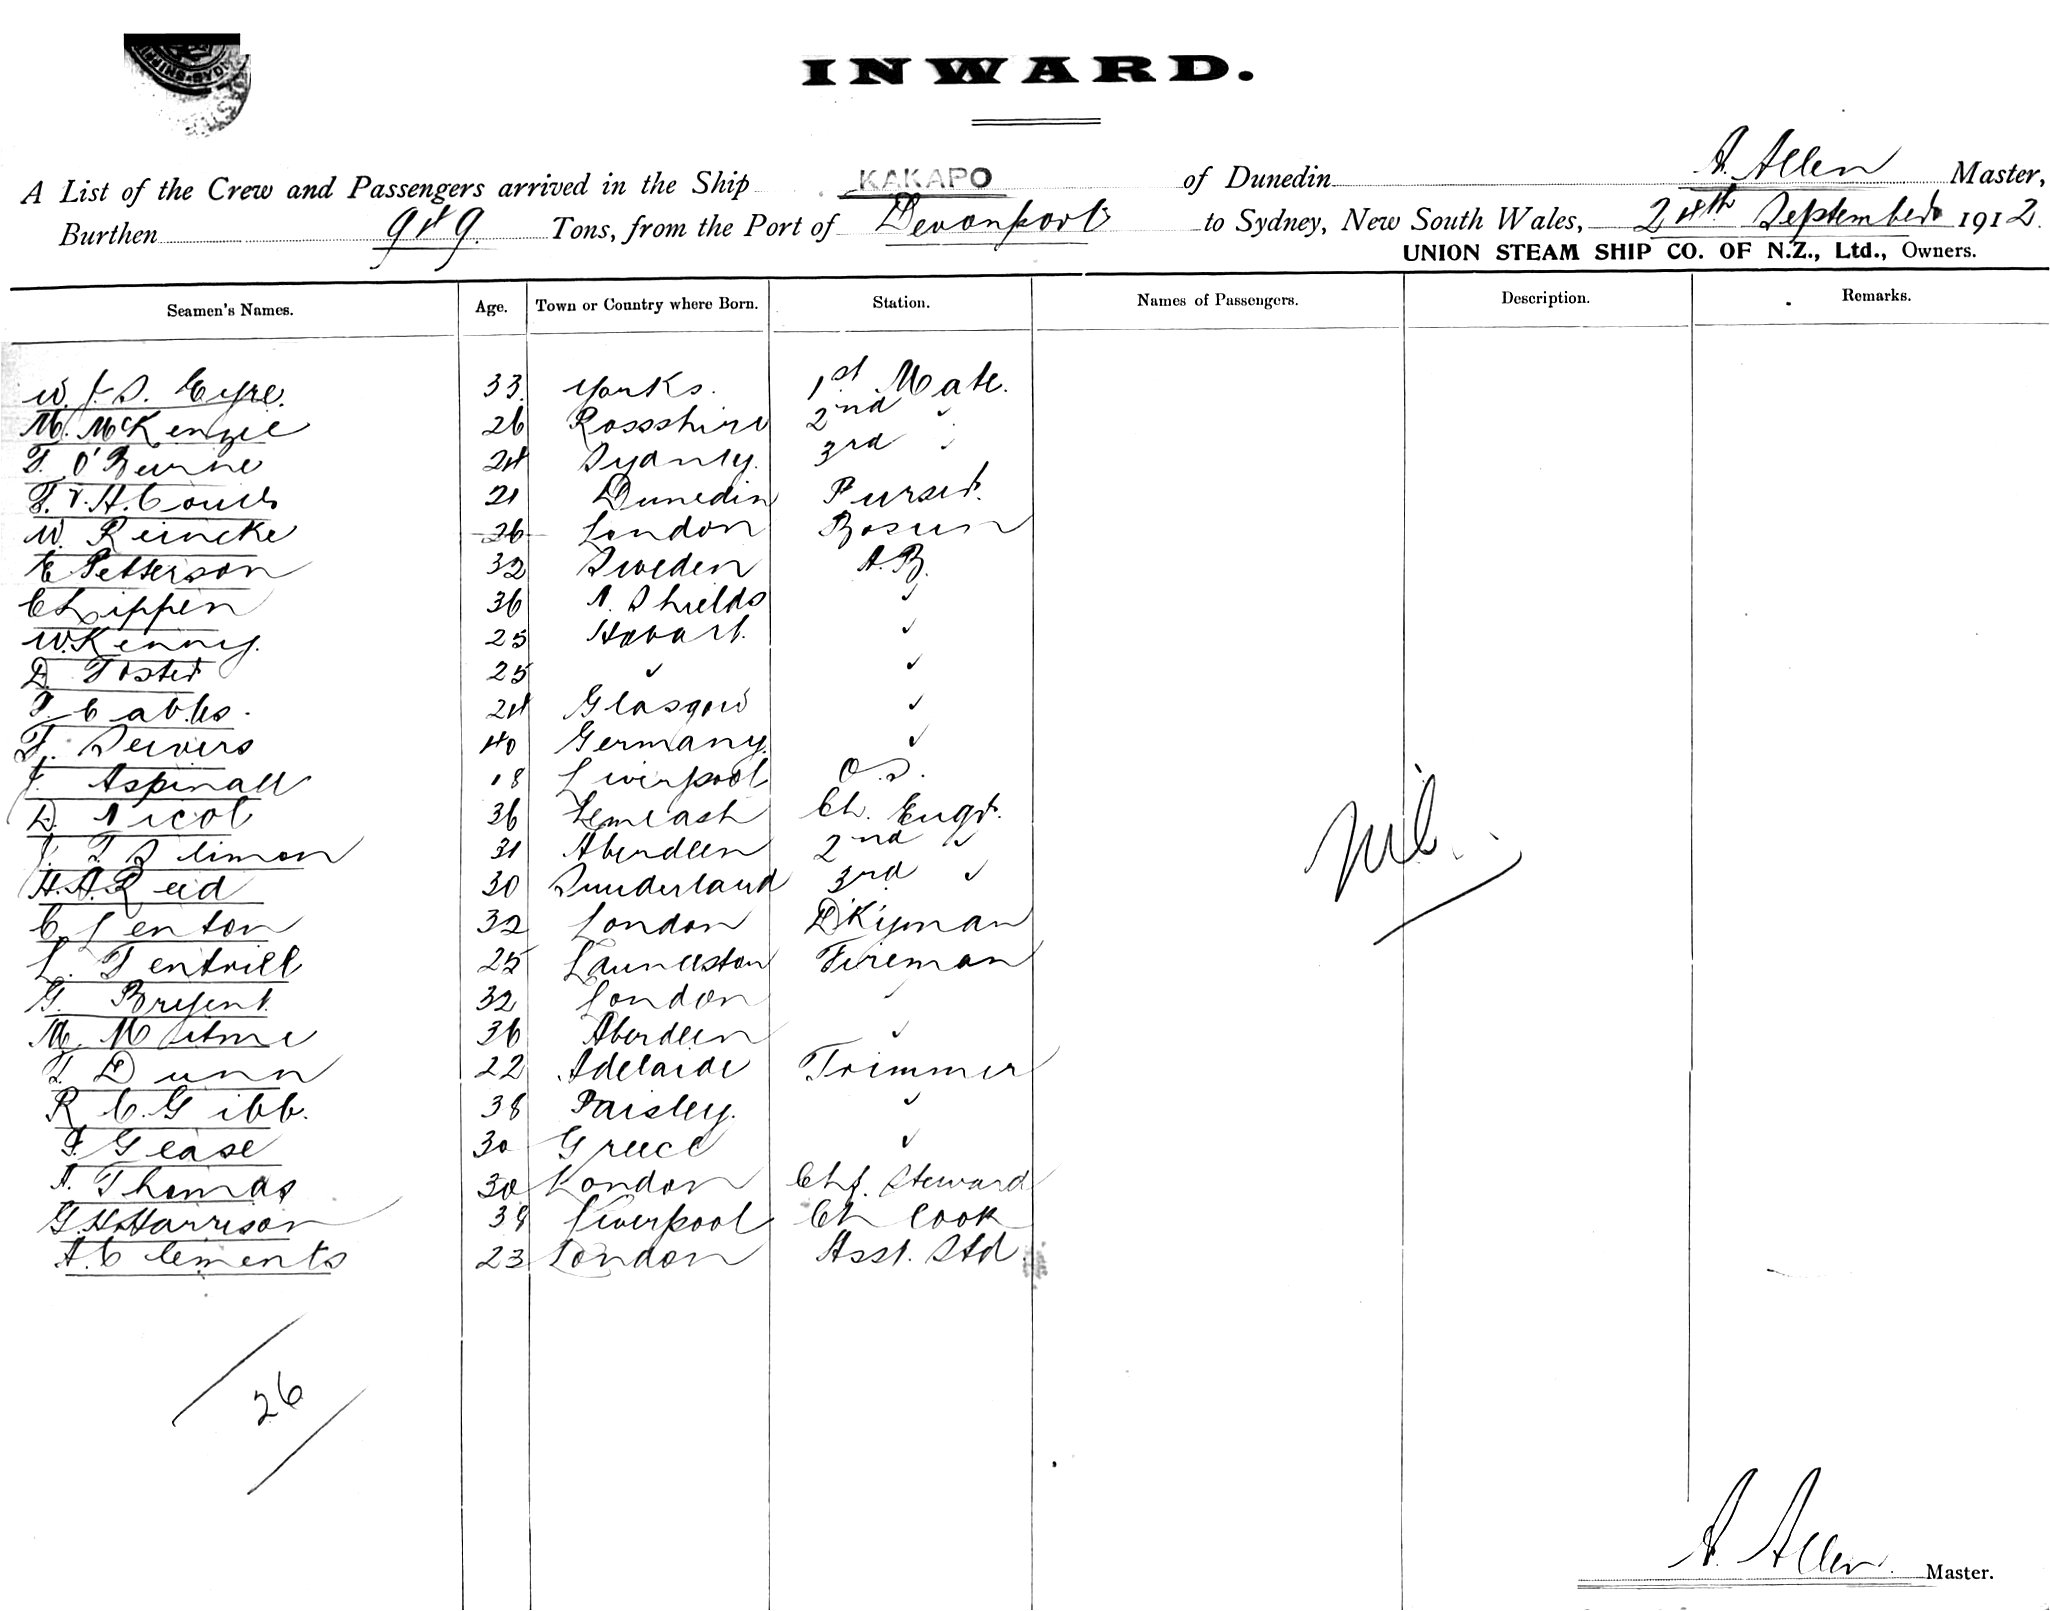 INWARD.
A List of the Crew and Passengers arrived in the Ship KAKAPO of Dunedin A. Allen Master,
Burthen 949 Tons, from the Port of Devonport to Sydney, New South Wales, 24th September 1912.
UNION STEAM SHIP CO. OF N.Z., Ltd., Owners.
Seamen's Names. Age. Town or Country where Born. Station. Names of Passengers. Description. Remarks.
W. J. S. Eyre. 33. Yorks. 1st Mate.
M. McKenzie 26 Rossshire 2nd "
T. O'Beirne 24 Sydney. 3rd "
21 Dunedin Purser.
W. Reincke 26 London Bosun
E Petterson 32 Sweden A.B.
C Lippen 36 N. Shields "
W. Kenny. 25 Hobart. "
D. Foster 25 " "
24 Glasgow "
40 Germany. "
J. Aspinall 18 Liverpool O.S.
D. Nicol 36 Ch. Engr.
31 Aberdeen 2nd "
H. A. Reid 30 Sunderland 3rd "
C. Fenton 32 London D'Kyman
25 Launceston Fireman
G. Bryent. 32 London "
M. Milne 36 Aberdeen "
T. Dunn 22 Adelaide Trimmer
R C. Gibb. 38 Paisley. "
Gease 30 Greece "
A. Thomas 30 London Chf. Steward
G. H. Harrison 38 Liverpool Ch Cook
A. Clements 23 London Asst. Std.
Nil.
26
A. Allen Master.